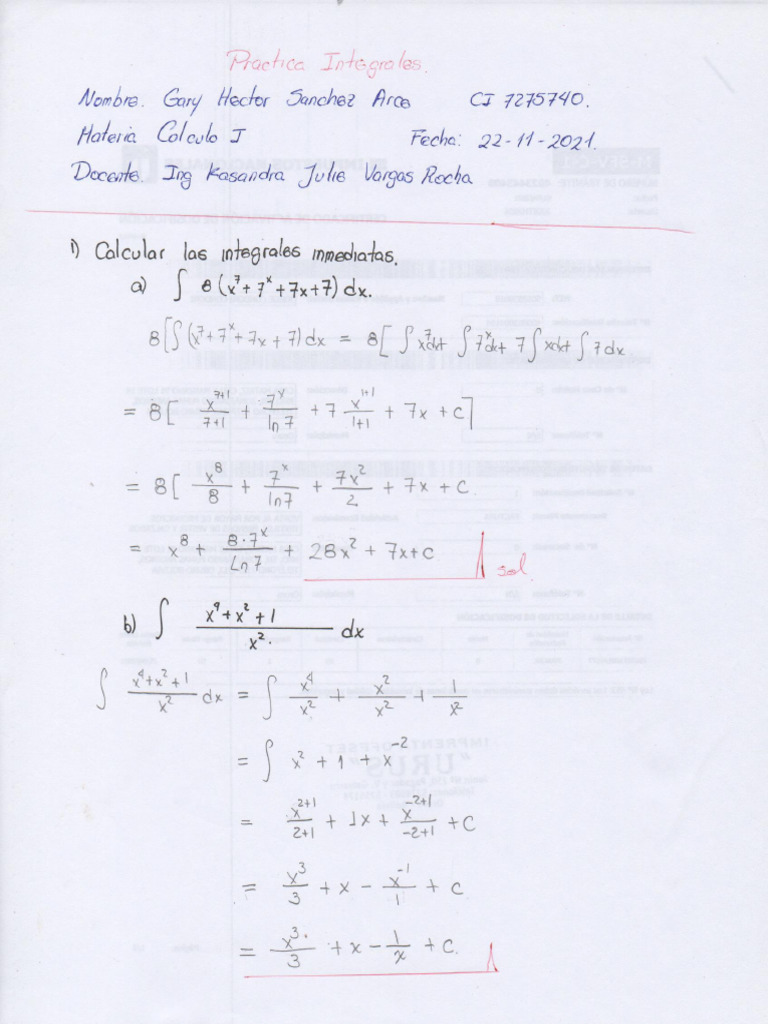 Practica Integrales.
Nombre. Gary Hector Sanchez Arce CI 7275740.
Materia Calculo I Fecha: 22-11-2021.
Docente. Ing Kasandra Julie Vargas Rocha
1) Calcular las integrales inmediatas.
a) ∫ 8(x⁷+7ˣ+7x+7)dx.
8[∫(x⁷+7ˣ+7x+7)dx = 8[∫x⁷dx+ ∫7ˣdx+ 7∫xdx+∫7dx
= 8[ x⁷⁺¹/7+1 + 7ˣ/ln7 + 7 x¹⁺¹/1+1 + 7x + c]
= 8[ x⁸/8 + 7ˣ/ln7 + 7x²/2 + 7x + c.
= x⁸ + 8·7ˣ/Ln7 + 28x² + 7x+c sol.
b) ∫ x⁴+x²+1/x². dx
∫ x⁴+x²+1/x² dx = ∫ x⁴/x² + x²/x² + 1/x²
= ∫ x² + 1 + x⁻²
= x²⁺¹/2+1 + 1x + x⁻²⁺¹/-2+1 + c
= x³/3 + x - x⁻¹/1 + c
= x³/3 + x - 1/x + c.